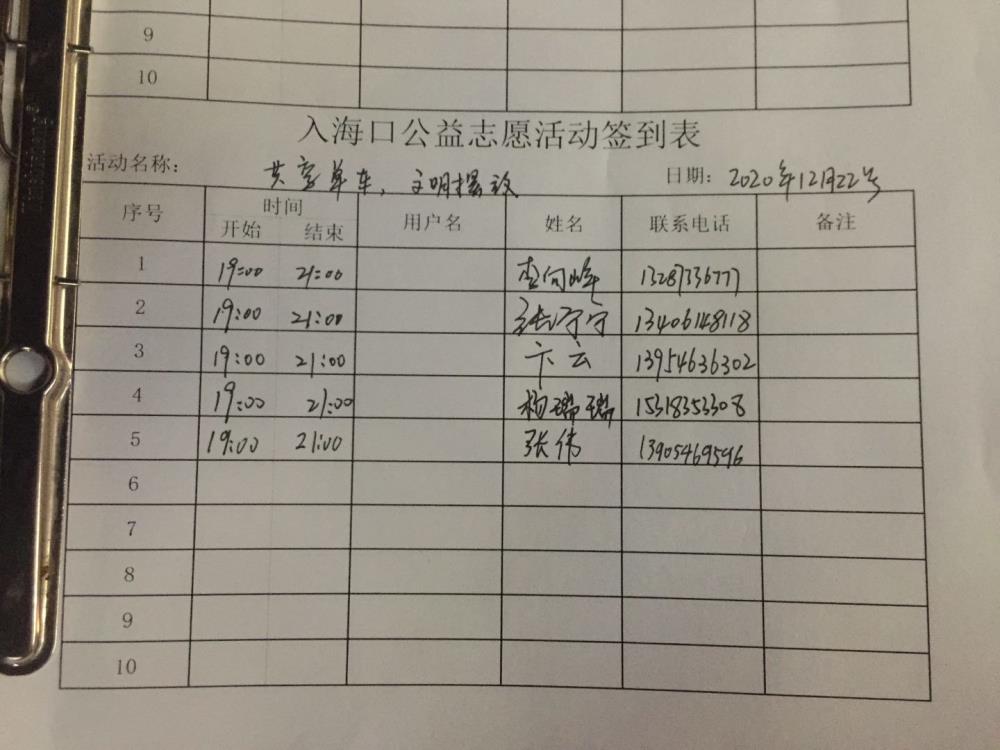 9
10
入海口公益志愿活动签到表
活动名称: 共享单车,文明摆放 日期: 2020年12月22号
序号 时间 用户名 姓名 联系电话 备注
开始 结束
1 19:00 21:00 李向峰 13287336777
2 19:00 21:00 张宁宁 13406148118
3 19:00 21:00 卞云 13954636302
4 19:00 21:00 杨瑞瑞 15318353308
5 19:00 21:00 张伟 13905469596
6
7
8
9
10